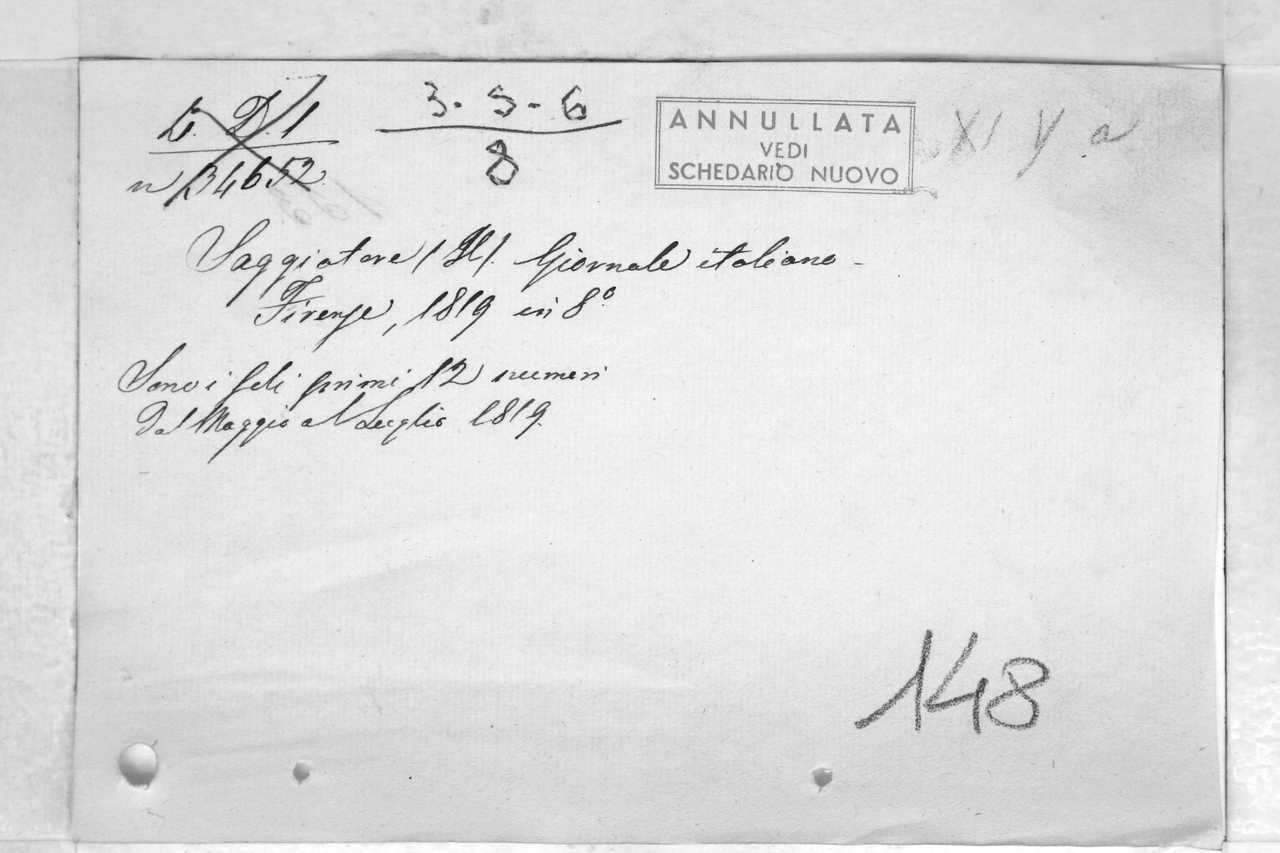 D. 1
3-5-6
8
n 34652
ANNULLATA
VEDI
SCHEDARIO NUOVO
XI V a
Saggiatore (Il). Giornale italiano -
Firenze, 1819 in 8.º
Sono i soli primi 12 numeri
Dal Maggio al Luglio 1819.
148